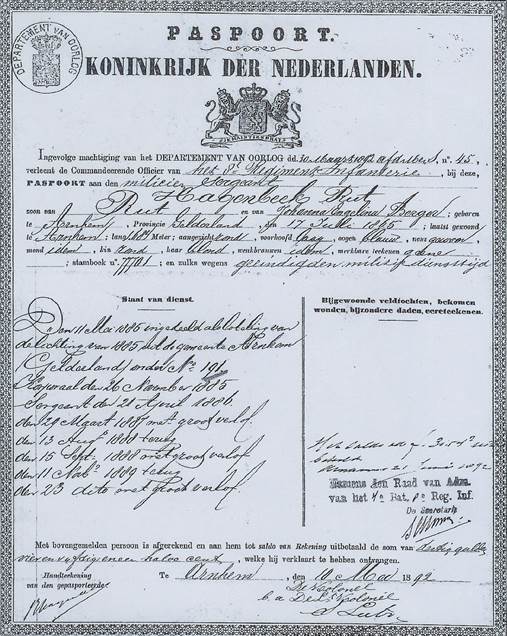 DEPARTEMENT VAN OORLOG
PASPOORT.
KONINKRIJK DER NEDERLANDEN.
JE MAINTIENDRAI
Ingevolge machtiging van het DEPARTEMENT VAN OORLOG dd. 30 Maart 1892 afd. n°. 45,
verleent de Commandeerende Officier van het 8e Regiment Infanterie, bij deze,
PASPOORT aan den milicien Sergeant
Hagenbeek Rut
zoon van Rut en van Johanna Engelina Berger geboren
te Arnhem, Provincie Gelderland den 17 Julie 1865 laatst gewoond
te Arnhem; lang Meter; aangezicht rond, voorhoofd laag, oogen blauw, neus gewoon,
mond idem, kin rond, haar blond, wenkbrauwen idem, merkbare teekenen geene
; stamboek n°. 77701; en zulks wegens geëindigden militie diensttijd
Staat van dienst.
Den 11 Mei 1885 ingedeeld als loteling van
de lichting van 1885, uit de gemeente Arnhem
(Gelderland) onder No 191.
Korporaal den 26 November 1885
Sergeant den 21 April 1886.
den 29 Maart 1887 met groot verlof.
den 13 Augs 1888 terug
den 15 Sept. 1888 met groot verlof
den 11 Novr 1889 terug
den 23 dito met groot verlof
Bijgewoonde veldtochten, bekomen
wonden, bijzondere daden, eereteekenen.
1892
Namens den Raad van Adm.
van het Bat. 8e Reg. Inf.
De Secretaris
Met bovengemelden persoon is afgerekend en aan hem tot saldo van Rekening uitbetaald de som van
halve cent, welke hij verklaart te hebben ontvangen.
Handteekening
van den gepasporteerde
Te Arnhem, den 10 Mei 1892
De Kolonel